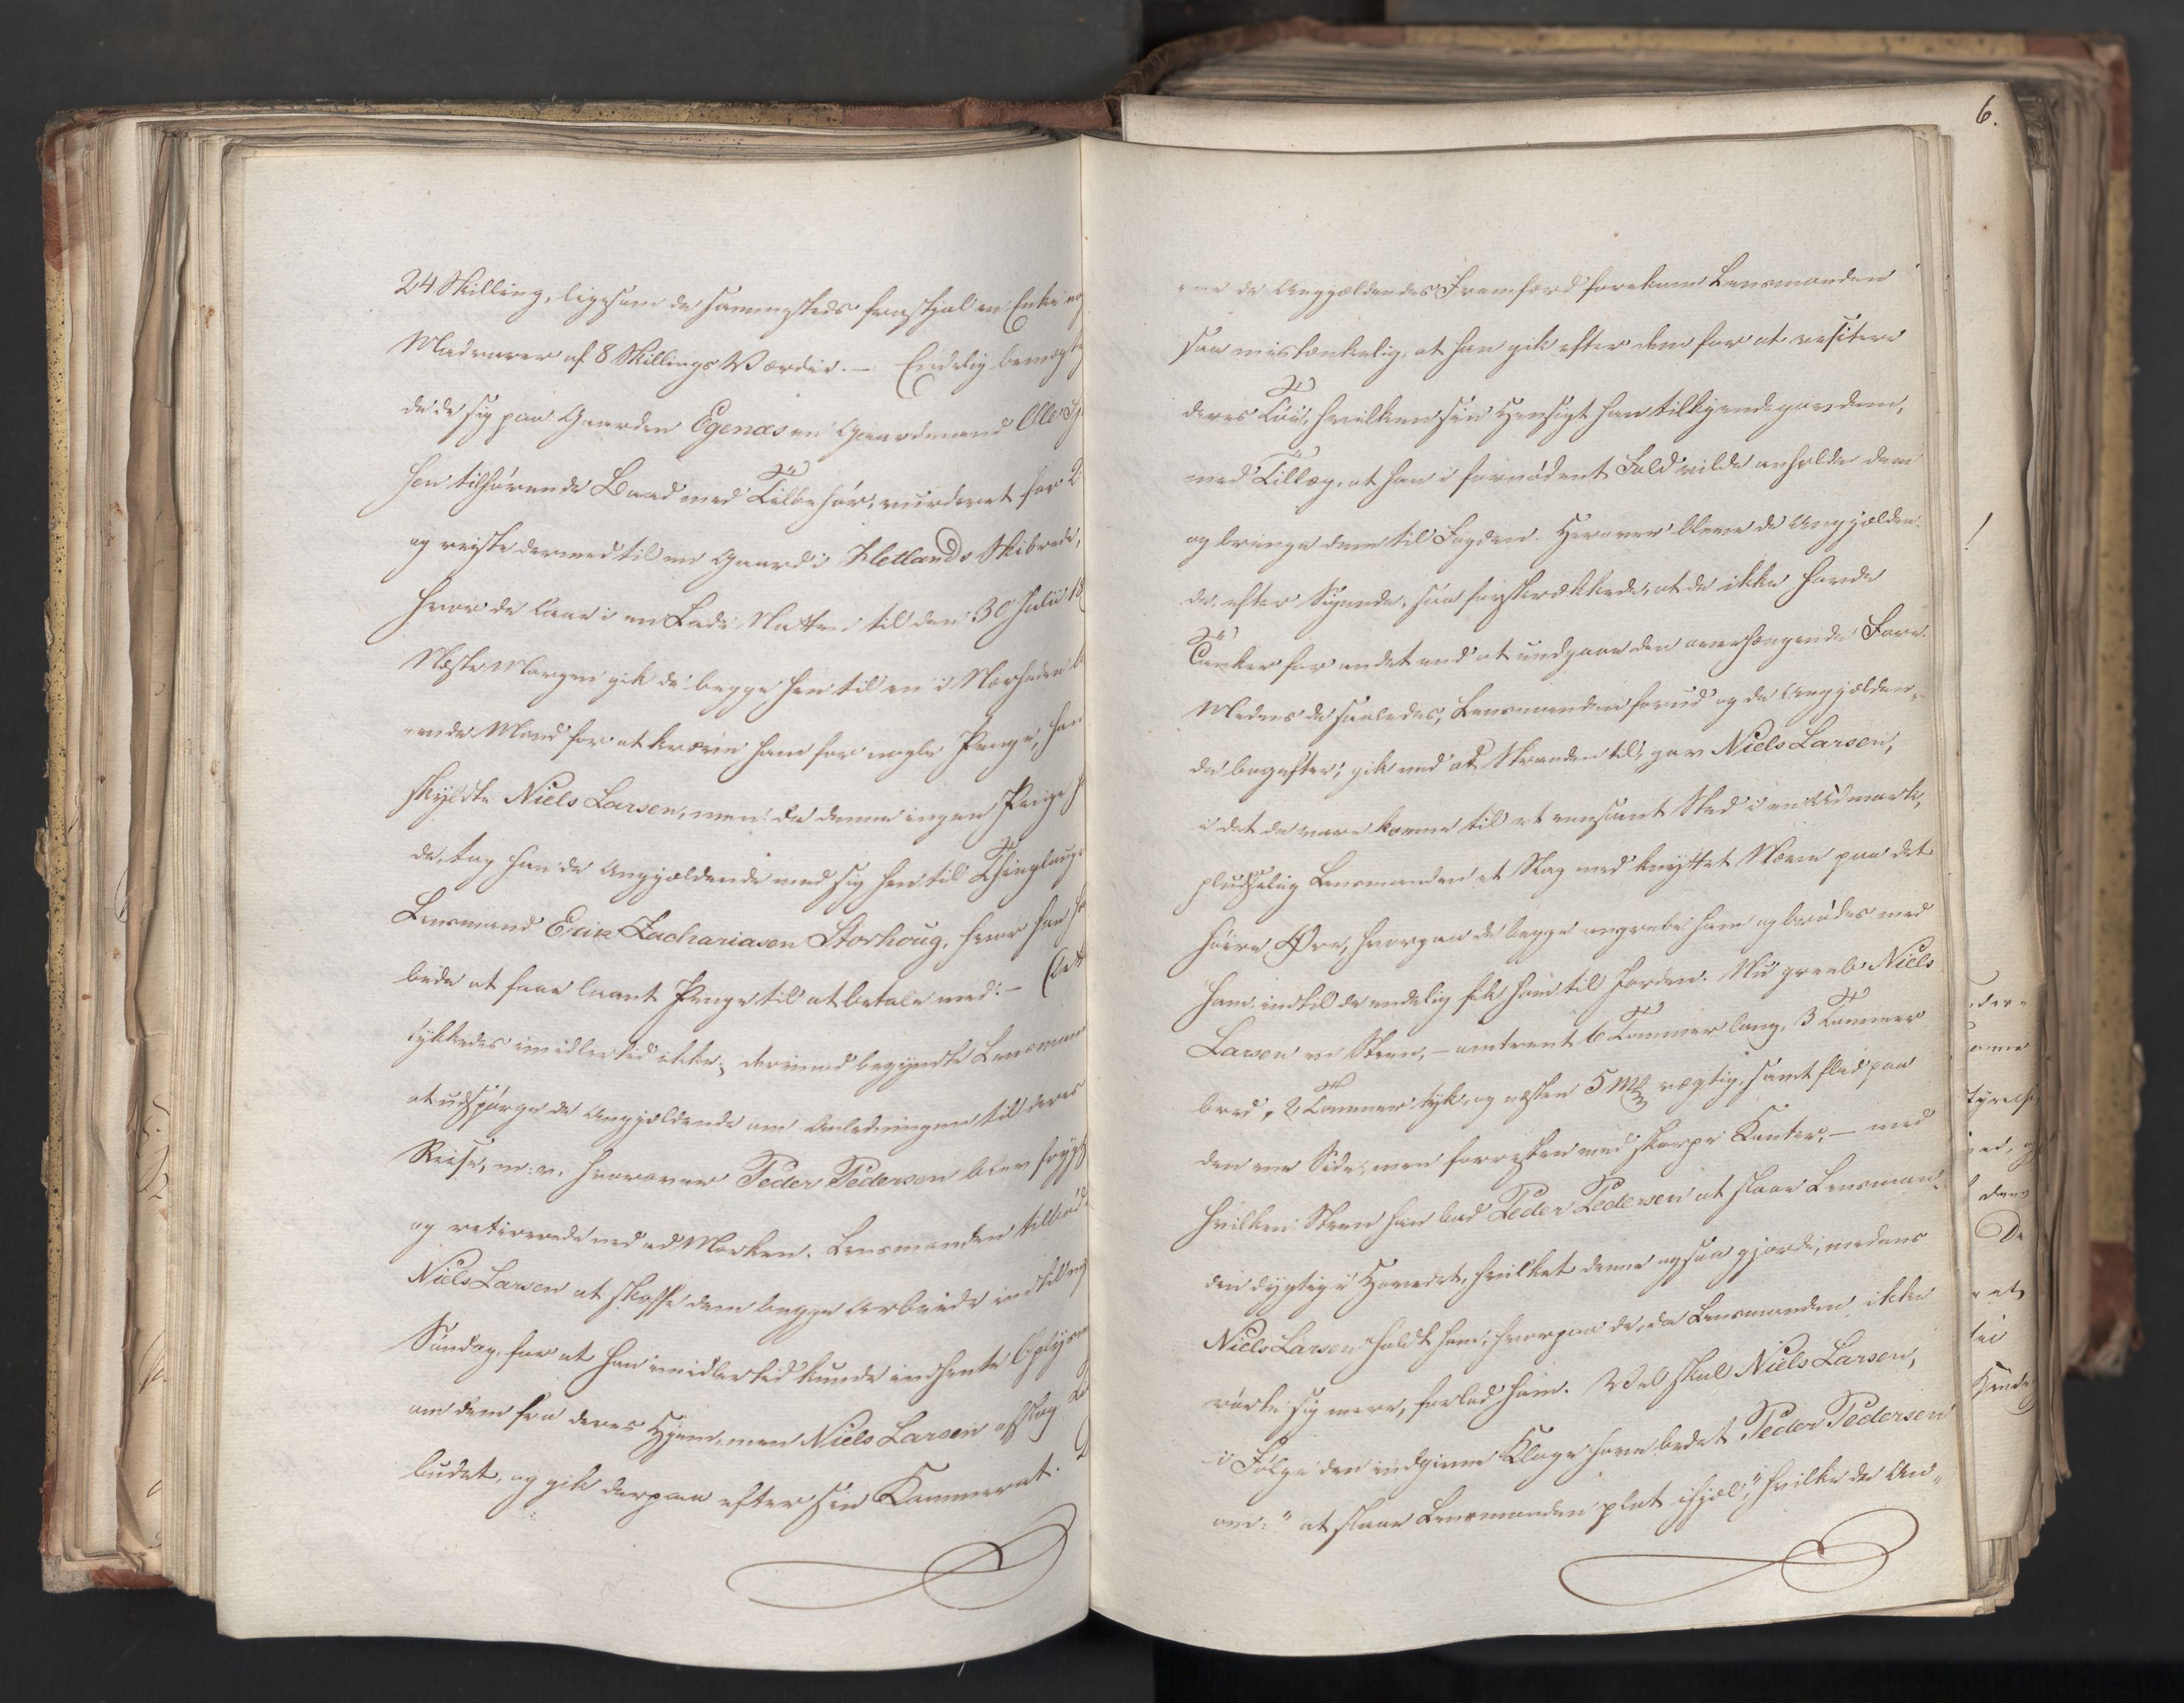 24 Skilling, ligesom de sammesteds frastjal en Enke og
Madvarer af 8 Skillings Værdie. – Endelig bemægti
de de sig paa Gaarden Egenæs en Gaardmand Olle
sen tilhørende Baad med Tilbehør, vurderet for 2
og reiste dermed til en Gaard i Hetlands Skibrede,
hvor de laae i en Lade Natten til den 30 Julii 18
Næste Morgen gik de begge hen til en i Nærheden
ende Mand for at kræve ham for nogle Penge, han
skyldte Niels Larsen, men da denne ingen Penge
de, tog han de Angjældende med sig hen til Thinglaugs
Lensmand Erik Zachariasen Storhoug, hvor han
bede at faae laant Penge til at betale med. – Dett
lykkedes imidlertid ikke; derimod begyndte Lensman
at udspørge de Angjældende om Anledningen til deres
Reise, m: v. hvorover Peder Pedersen blev frygt
og retirerede ned ad Marken. Lensmanden tilbød
Niels Larsen at skaffe dem begge Arbeide indtil
Søndag, for at han imidlertid kunde indhente Oplysn
om dem fra deres Hjem, men Niels Larsen afslog
budet, og gik derpaa efter sin Kammerat.
6.
de Angjældendes Fremfærd forekom Lensmanden
saa mistænkelig, at han gik efter dem for at visitere
deres Töi, hvilken sin Hensigt han tilkjendegav dem,
med Tillæg, at han i fornødent Fald vilde anholde dem
og bringe dem til Fogden. Herover bleve de Angjælden-
de, efter Sigende, saa forskrækkede, at de ikke havde
Tanker for andet end at undgaae den overhængende Fare.
Medens de saaledes, Lensmanden forud og de Angjælden-
de bagefter, gik ned at Stranden til, gav Niels Larsen,
i det de vare komne til et eensomt Sted i en Udmark,
pludselig Lensmanden et Slag med knyttet Næve paa det
høire Øre, hvorpaa de begge angrebe ham og brødes med
ham indtil de endelig fik ham til Jorden. Nu greeb Niels
Larsen en Steen, – omtrent 6 Tommer lang, 3 Tommer
bred, 2 Tommer tyk og næsten 5 Mk vægtig, samt flad paa
den ene Side, men forresten med skarpe Kanter, – med
hvilken Steen han bad Peder Pedersen at slaae Lensman-
den dygtig i Hovedet, hvilket denne ogsaa gjorde, medens
Niels Larsen holdt ham, hvorpaa de, da Lensmanden ikke
rørte sig mere, forlod ham. Vel skal Niels Larsen,
i Følge den indgivne Klage have bedet Peder Pedersen
om: "at slaae Lensmanden plat ihjel," hvilke de An-